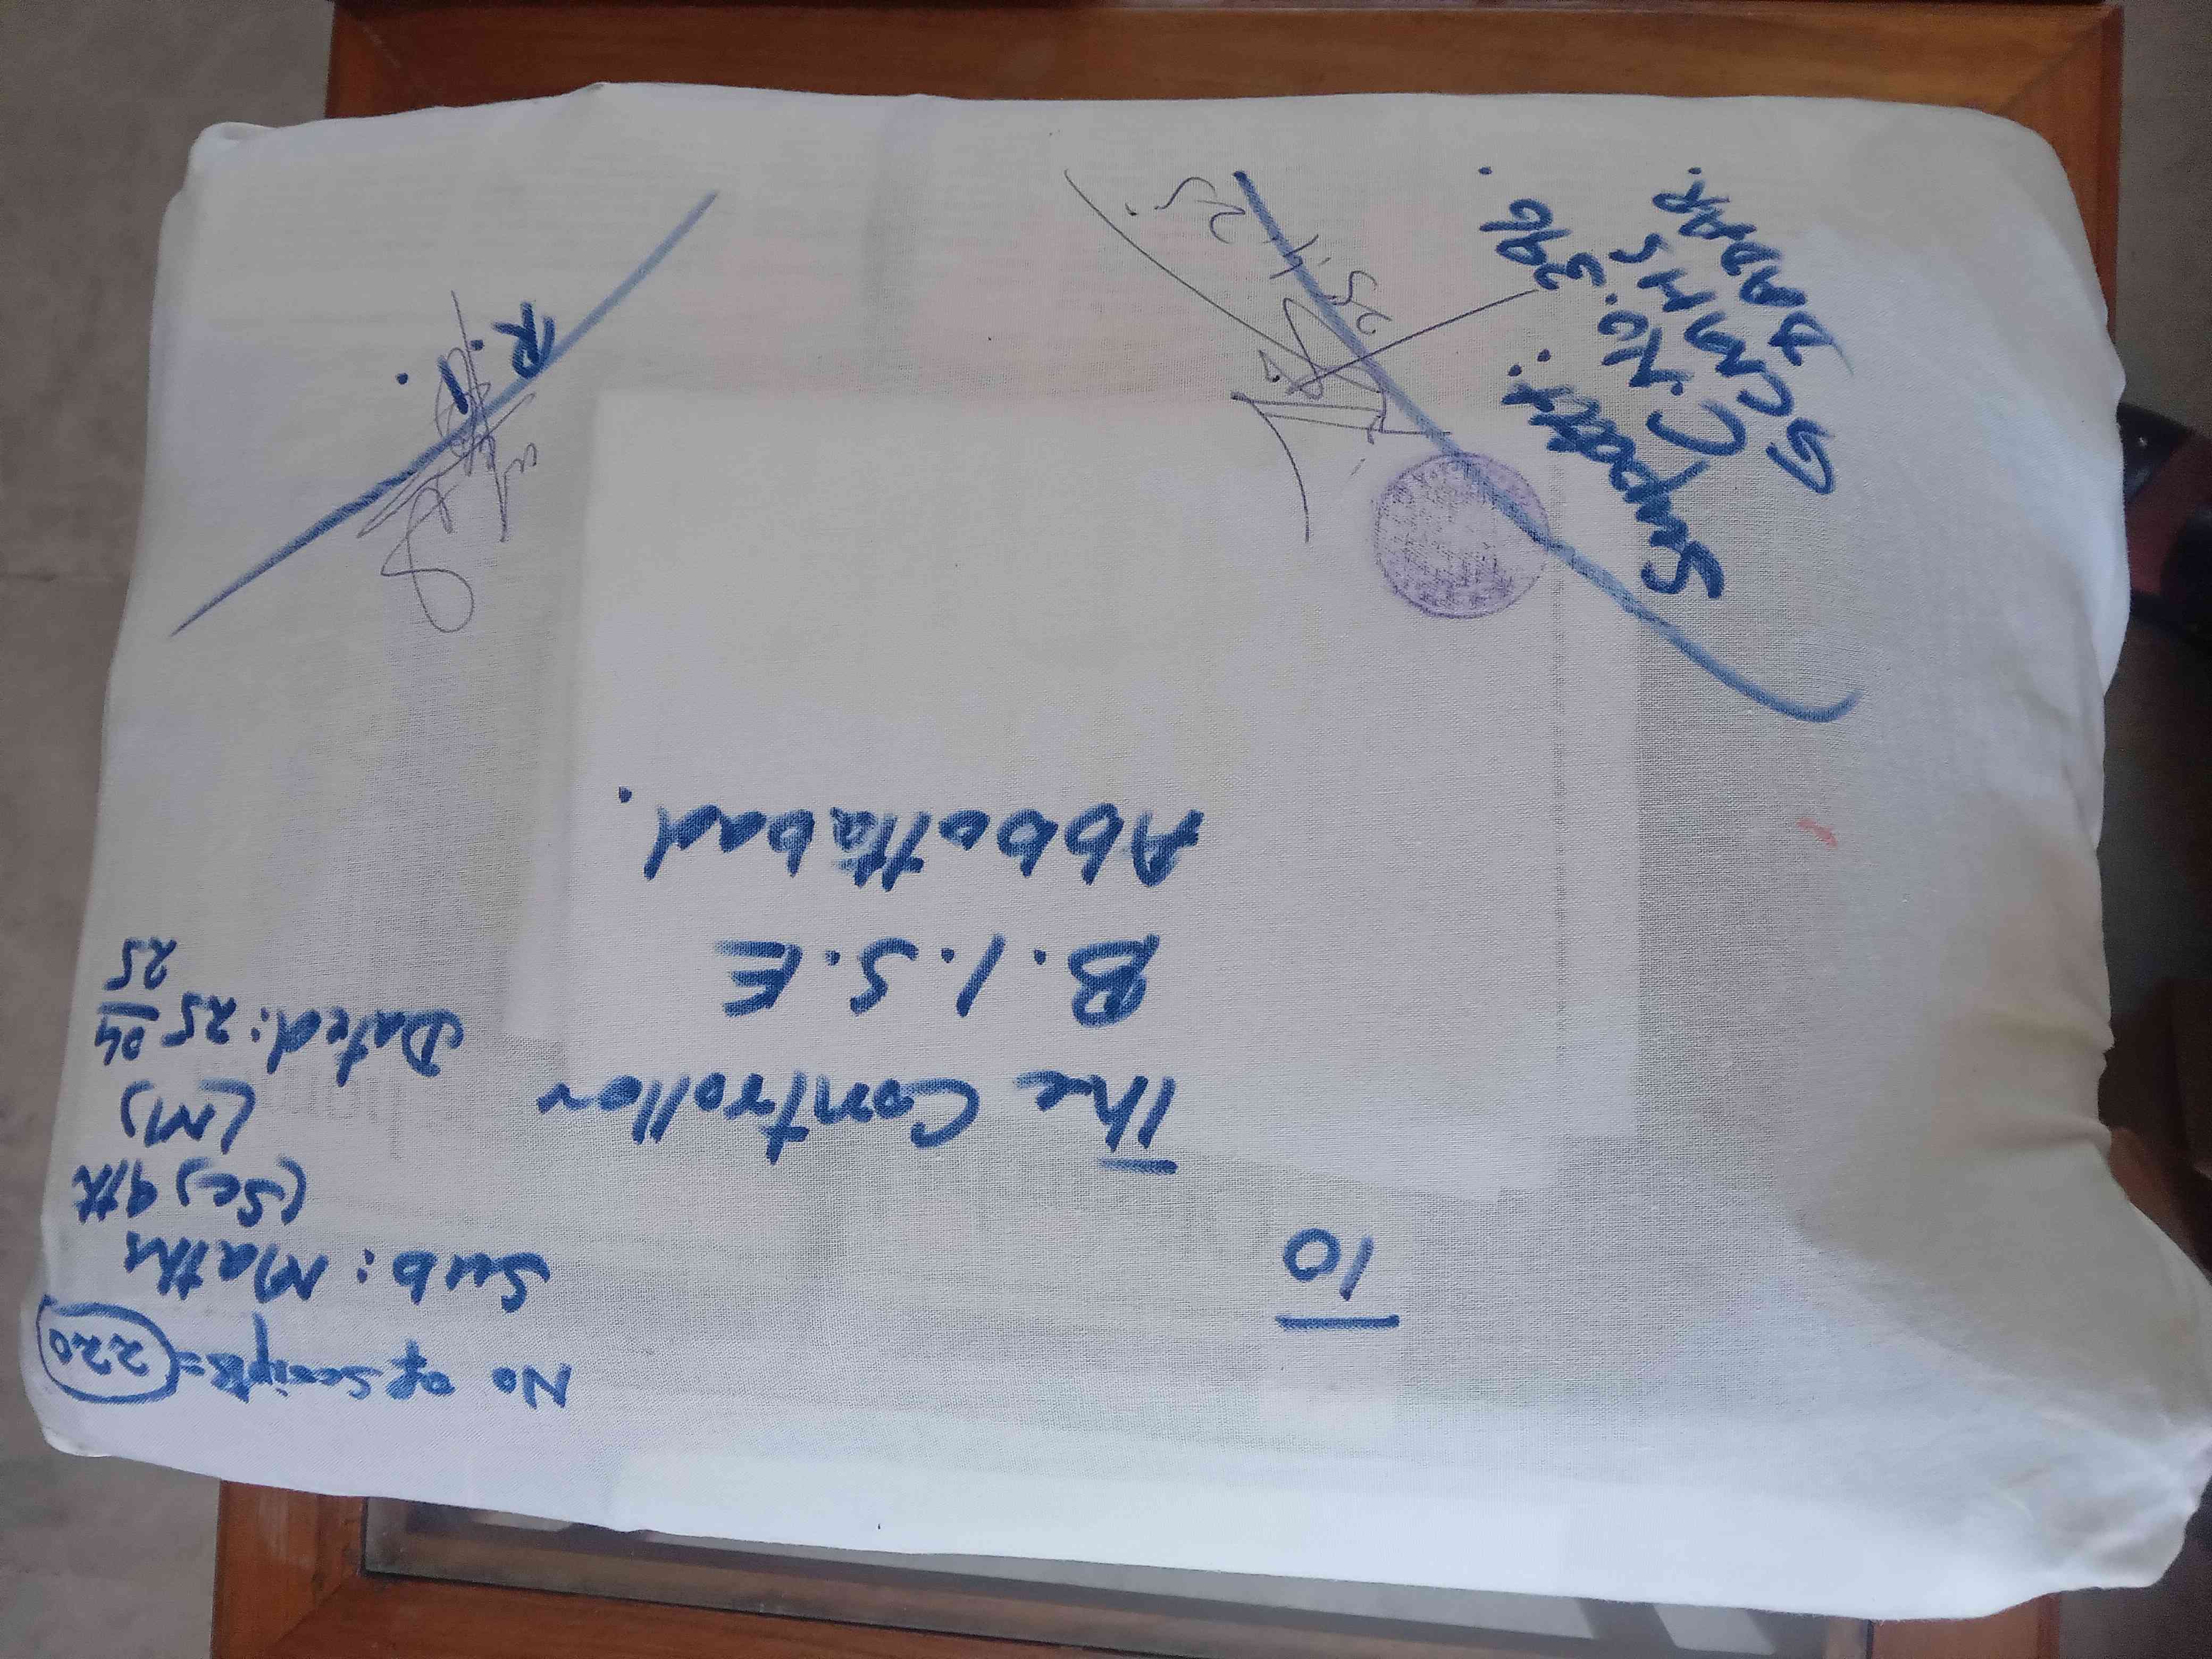 No of scripts = 220
Sub: Maths
(Sc) 9th
(M)
Dated: 25 04
25
To
The Controller
B.I.S.E
Abbottabad.
R.I.
25.4.25.
Supdtt.
C.No. 396.
GCMHS